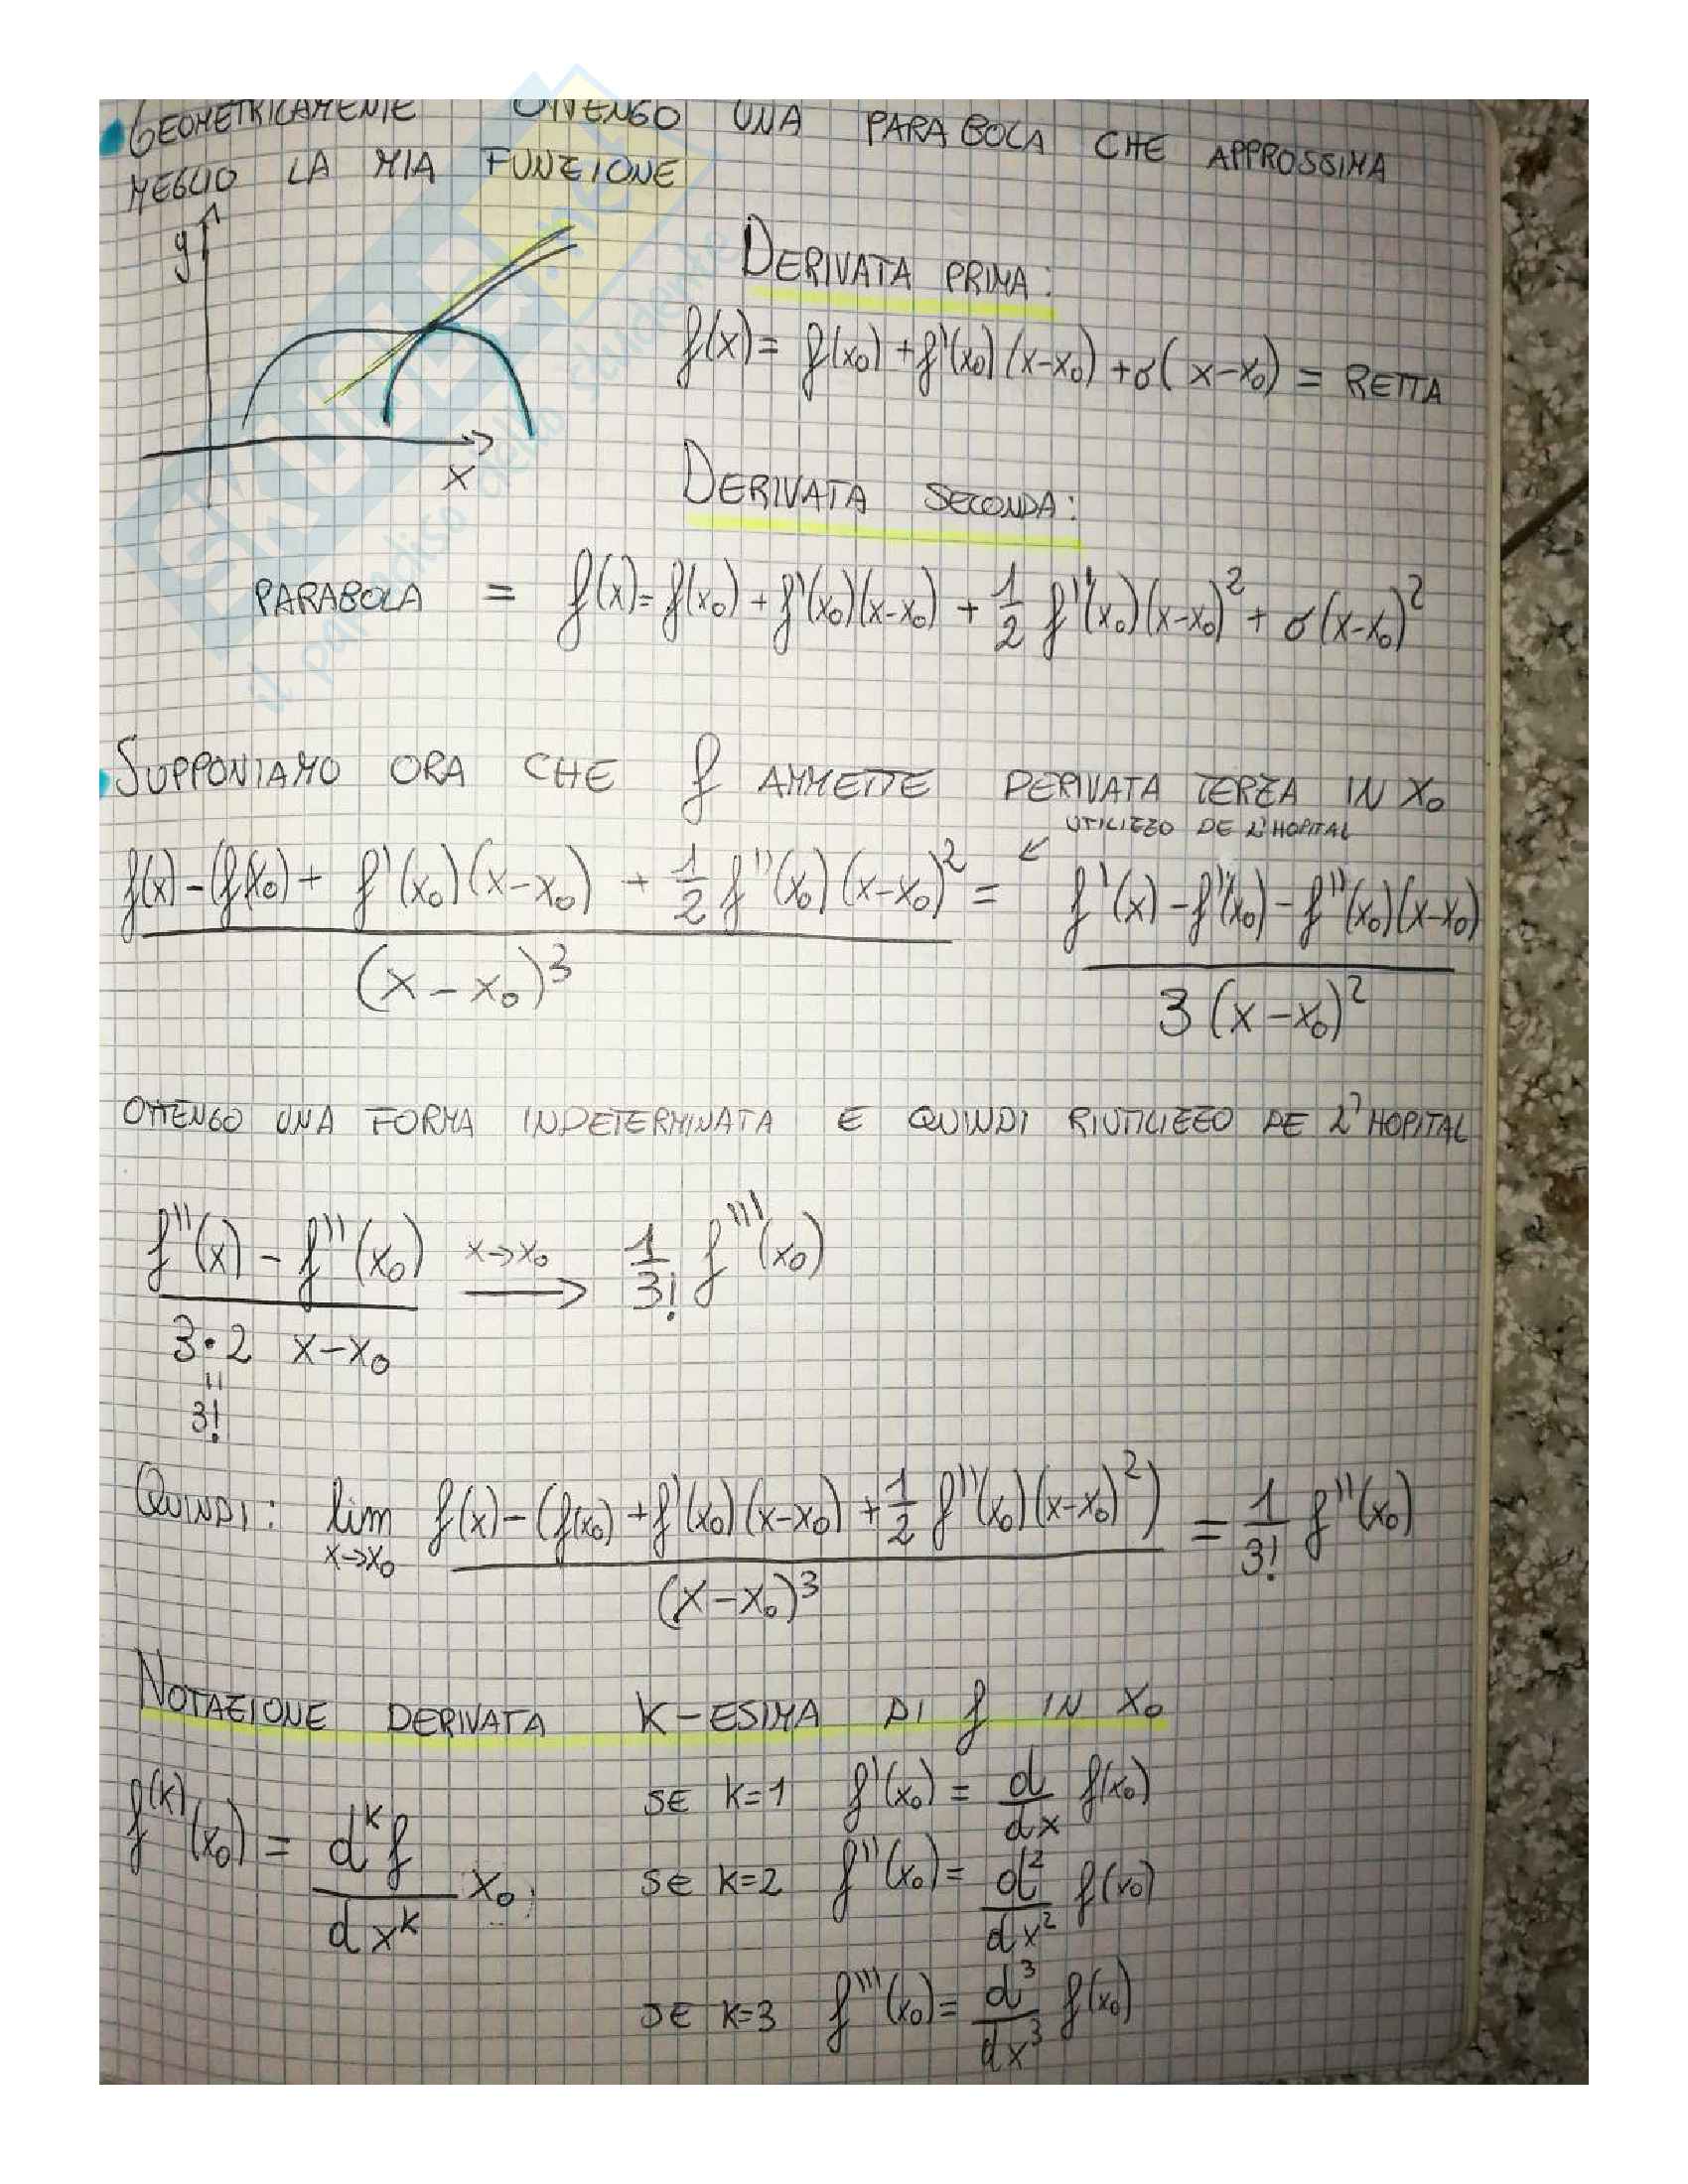 GEOMETRICAMENTE OTTENGO UNA PARABOLA CHE APPROSSIMA
MEGLIO LA MIA FUNZIONE
y
x
DERIVATA PRIMA:
f(x) = f(x₀) + f'(x₀)(x-x₀) + σ(x-x₀) = RETTA
DERIVATA SECONDA:
PARABOLA = f(x) = f(x₀) + f'(x₀)(x-x₀) + 1/2 f''(x₀)(x-x₀)² + σ(x-x₀)²
SUPPONIAMO ORA CHE f AMMETTE DERIVATA TERZA IN X₀
UTILIZZO DE L'HOPITAL
f(x) - (f(x₀) + f'(x₀)(x-x₀) + 1/2 f''(x₀)(x-x₀)² = ↙ f'(x) - f'(x₀) - f''(x₀)(x-x₀)
(x-x₀)³ 3(x-x₀)²
OTTENGO UNA FORMA INDETERMINATA E QUINDI RIUTILIZZO DE L'HOPITAL
f''(x) - f''(x₀) x→x₀ 1/3! f'''(x₀)
3·2 x-x₀
"
3!
QUINDI: lim x→x₀ f(x) - (f(x₀) + f'(x₀)(x-x₀) + 1/2 f''(x₀)(x-x₀)²) = 1/3! f''(x₀)
(x-x₀)³
NOTAZIONE DERIVATA K-ESIMA DI f IN X₀
f⁽ᵏ⁾(x₀) = dᵏf/dxᵏ x₀
SE K=1 f'(x₀) = d/dx f(x₀)
SE K=2 f''(x₀) = d²/dx² f(x₀)
SE K=3 f'''(x₀) = d³/dx³ f(x₀)
SKUOLA.net
il paradiso dello studente